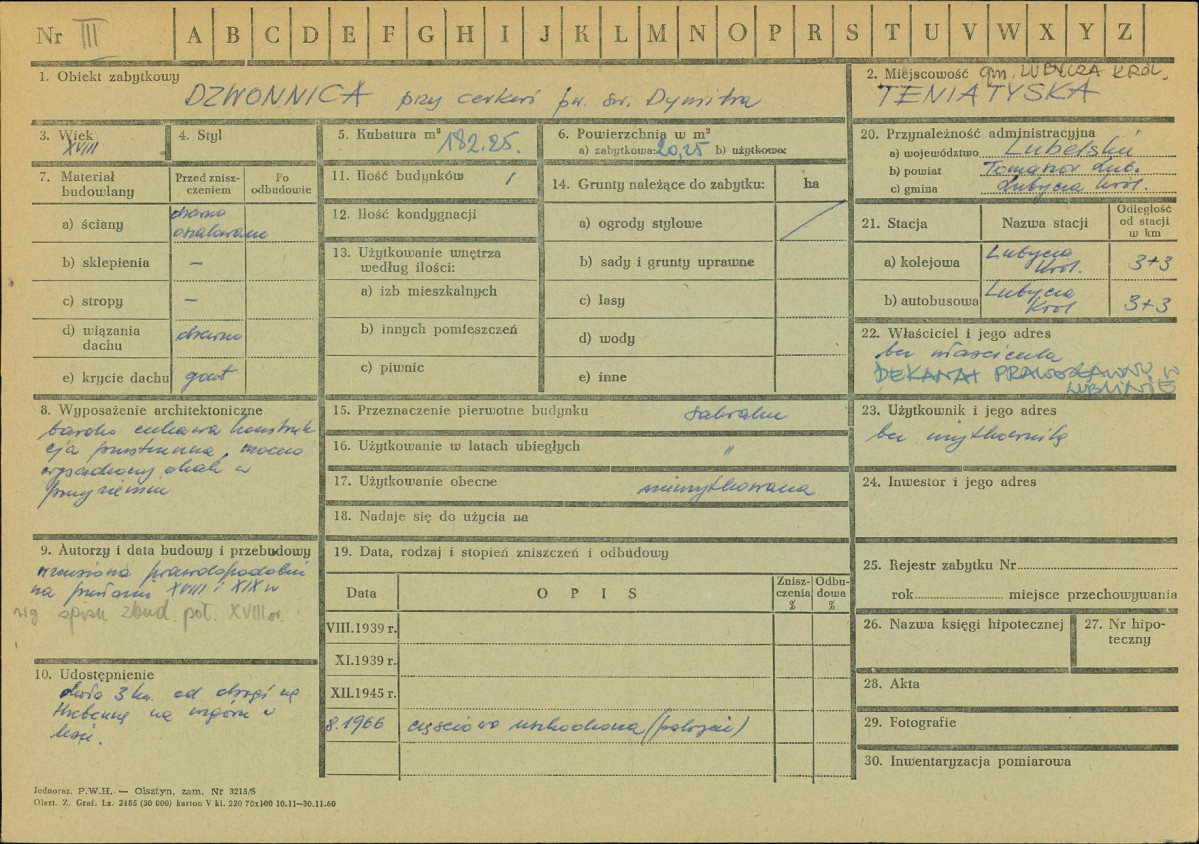 Nr III A B C D E F G H I J K L M N O P R S T U V W X Y Z
1. Obiekt zabytkowy
DZWONNICA przy cerkwi pw. św. Dymitra
2. Miejscowość gm. LUBYCZA KRÓL.
TENIATYSKA
3. Wiek
XVIII
4. Styl
5. Kubatura m³ 182.25.
6. Powierzchnia w m²
a) zabytkowa: 20,25 b) użytkowa:
7. Materiał budowlany
Przed zniszczeniem
Po odbudowie
a) ściany
drewno
oszalowane
b) sklepienia –
c) stropy –
d) wiązania dachu drewno
e) krycie dachu gont
8. Wyposażenie architektoniczne
bardzo ciekawa konstruk
cja przestrzenna, mocno
wysadzony okap w
przyziemiu
9. Autorzy i data budowy i przebudowy
wzniesiona prawdopodobnie
na przełomie XVIII i XIX w
wg spisu zbud. poł. XVIII w.
10. Udostępnienie
około 3 km. od drogi na
Hrebenne na wzgórzu w
lesie.
11. Ilość budynków 1
12. Ilość kondygnacji
13. Użytkowanie wnętrza według ilości:
a) izb mieszkalnych
b) innych pomieszczeń
c) piwnic
14. Grunty należące do zabytku: ha
a) ogrody stylowe
b) sady i grunty uprawne
c) lasy
d) wody
e) inne
15. Przeznaczenie pierwotne budynku sakralne
16. Użytkowanie w latach ubiegłych "
17. Użytkowanie obecne nieużytkowana
18. Nadaje się do użycia na
19. Data, rodzaj i stopień zniszczeń i odbudowy
Data OPIS Zniszczenia % Odbudowa %
VIII.1939 r.
XI.1939 r.
XII.1945 r.
8.1966 częściowo uszkodzona (pokrycie)
20. Przynależność administracyjna
a) województwo Lubelskie
b) powiat Tomaszów Lub.
c) gmina Lubycza Król.
21. Stacja Nazwa stacji Odległość od stacji w km
a) kolejowa Lubycza Król. 3+3
b) autobusowa Lubycza Król 3+3
22. Właściciel i jego adres
bez właściciela
DEKANAT PRAWOSŁAWNY W
LUBLINIE
23. Użytkownik i jego adres
bez użytkownika
24. Inwestor i jego adres
25. Rejestr zabytku Nr
rok miejsce przechowywania
26. Nazwa księgi hipotecznej
27. Nr hipoteczny
28. Akta
29. Fotografie
30. Inwentaryzacja pomiarowa
Jednoraz. P.W.H. — Olsztyn, zam. Nr 3215/S
Olszt. Z. Graf. Lz. 2485 (30 000) karton V kl. 220 70x100 10.11—30.11.60